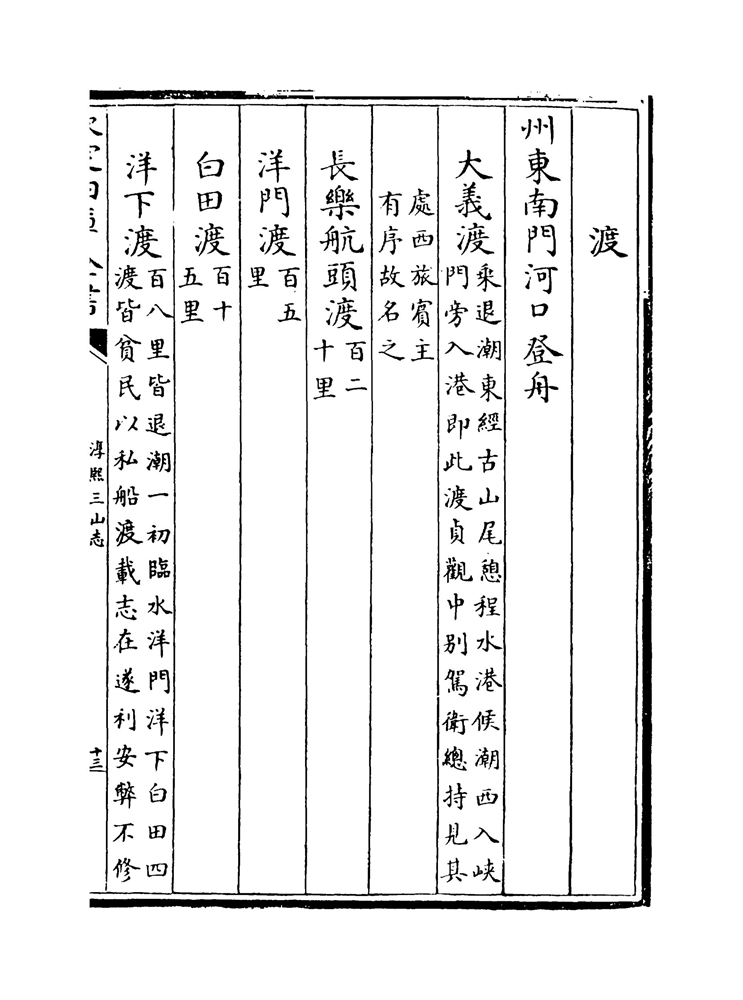 渡
州東南門河口登舟
大義渡
乘退潮東經古山尾憩程水港候潮西入峽
門旁入港即此渡貞觀中别駕衛總持見其
處西旅賓主
有序故名之
長樂航頭渡
百二
十里
洋門渡
百五
里
白田渡
百十
五里
洋下渡
百八里皆退潮一初臨水洋門洋下白田四
渡皆貧民以私船渡載志在遂利安弊不修
淳熙三山志
十三